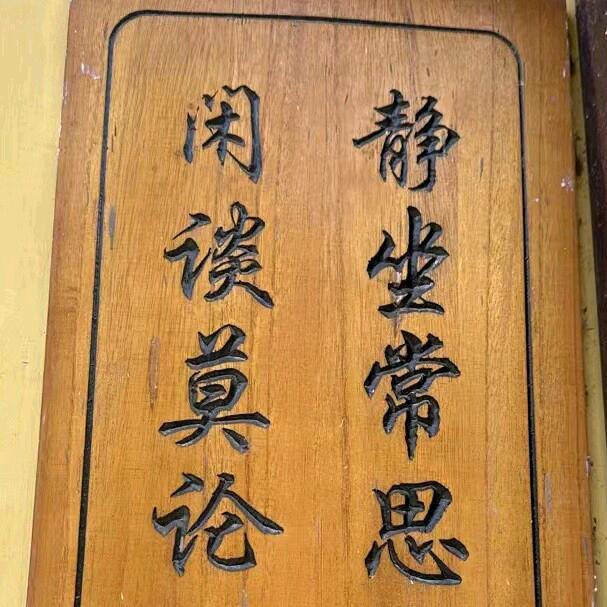 静坐常思
闲谈莫论